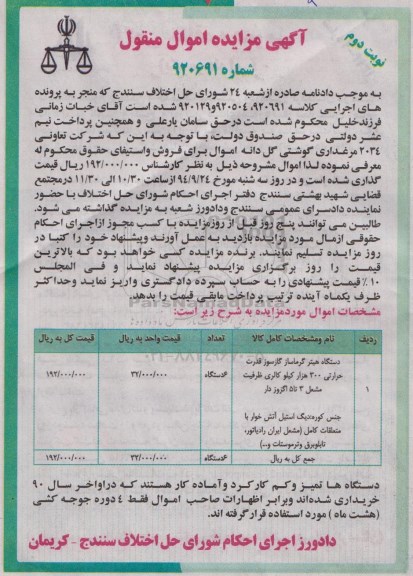 آگهی مزایده اموال منقول
نوبت دوم
شماره ۹۲۰۶۹۱
به موجب دادنامه صادره ازشعبه ۲۴ شورای حل اختلاف سنندج که منجر به پرونده
های اجرایی کلاسه ۹۲۰۶۹۱، ۹۲۰۵۰۴و۹۲۰۱۲۹ شده است آقای خبات زمانی
فرزندخلیل محکوم شده است درحق سامان یارعلی و همچنین پرداخت نیم
عشر دولتی درحق صندوق دولت، با توجه به این که شرکت تعاونی
۲۰۳۴ مرغداری گوشتی گل دانه اموال برای فروش واستیفای حقوق محکوم له
معرفی نموده لذا اموال مشروحه ذیل به نظر کارشناس ۱۹۲/۰۰۰/۰۰۰ ریال قیمت
گذاری شده است و در روز سه شنبه مورخ ۹۴/۹/۲۴ ازساعت ۱۰/۳۰ الی ۱۱/۳۰ درمجتمع
قضایی شهید بهشتی سنندج دفتر اجرای احکام شورای حل اختلاف با حضور
نماینده دادسرای عمومی سنندج ودادورز شعبه به مزایده گذاشته می شود.
طالبین می توانند پنج روز قبل از روزمزایده با کسب مجوز ازاجرای احکام
حقوقی ازمال مورد مزایده بازدید به عمل آورند وپیشنهاد خود را کتبا در
روز مزایده تسلیم نمایند. برنده مزایده کسی خواهد بود که بالاترین
قیمت را روز برگزاری مزایده پیشنهاد نماید و فی المجلس
۱۰٪ قیمت پیشنهادی را به حساب سپرده دادگستری واریز نماید وحداکثر
ظرف یکماه آینده ترتیب پرداخت مابقی قیمت را بدهد.
مشخصات اموال موردمزایده به شرح زیر است:
ردیف نام ومشخصات کامل کالا تعداد قیمت واحد به ریال قیمت کل به ریال
۱ دستگاه هیتر گرماساز گازسوز قدرت حرارتی ۳۰۰ هزار کیلو کالری ظرفیت مشعل ۳ تا۵ اگزوز دار ۶دستگاه ۳۲/۰۰۰/۰۰۰ ۱۹۲/۰۰۰/۰۰۰
جنس کوره:دیگ استیل آتش خوار با
متعلقات کامل (مشعل ایران رادیاتور،
تابلوبرق وترموستات و...)
جمع کل به ریال ۶دستگاه ۳۲/۰۰۰/۰۰۰ ۱۹۲/۰۰۰/۰۰۰
دستگاه ها تمیز وکم کارکرد وآماده کار هستند که دراواخر سال ۹۰
خریداری شده‌اند وبرابر اظهارات صاحب اموال فقط ۴ دوره جوجه کشی
(هشت ماه) مورد استفاده قرار گرفته اند.
دادورز اجرای احکام شورای حل اختلاف سنندج - کریمان